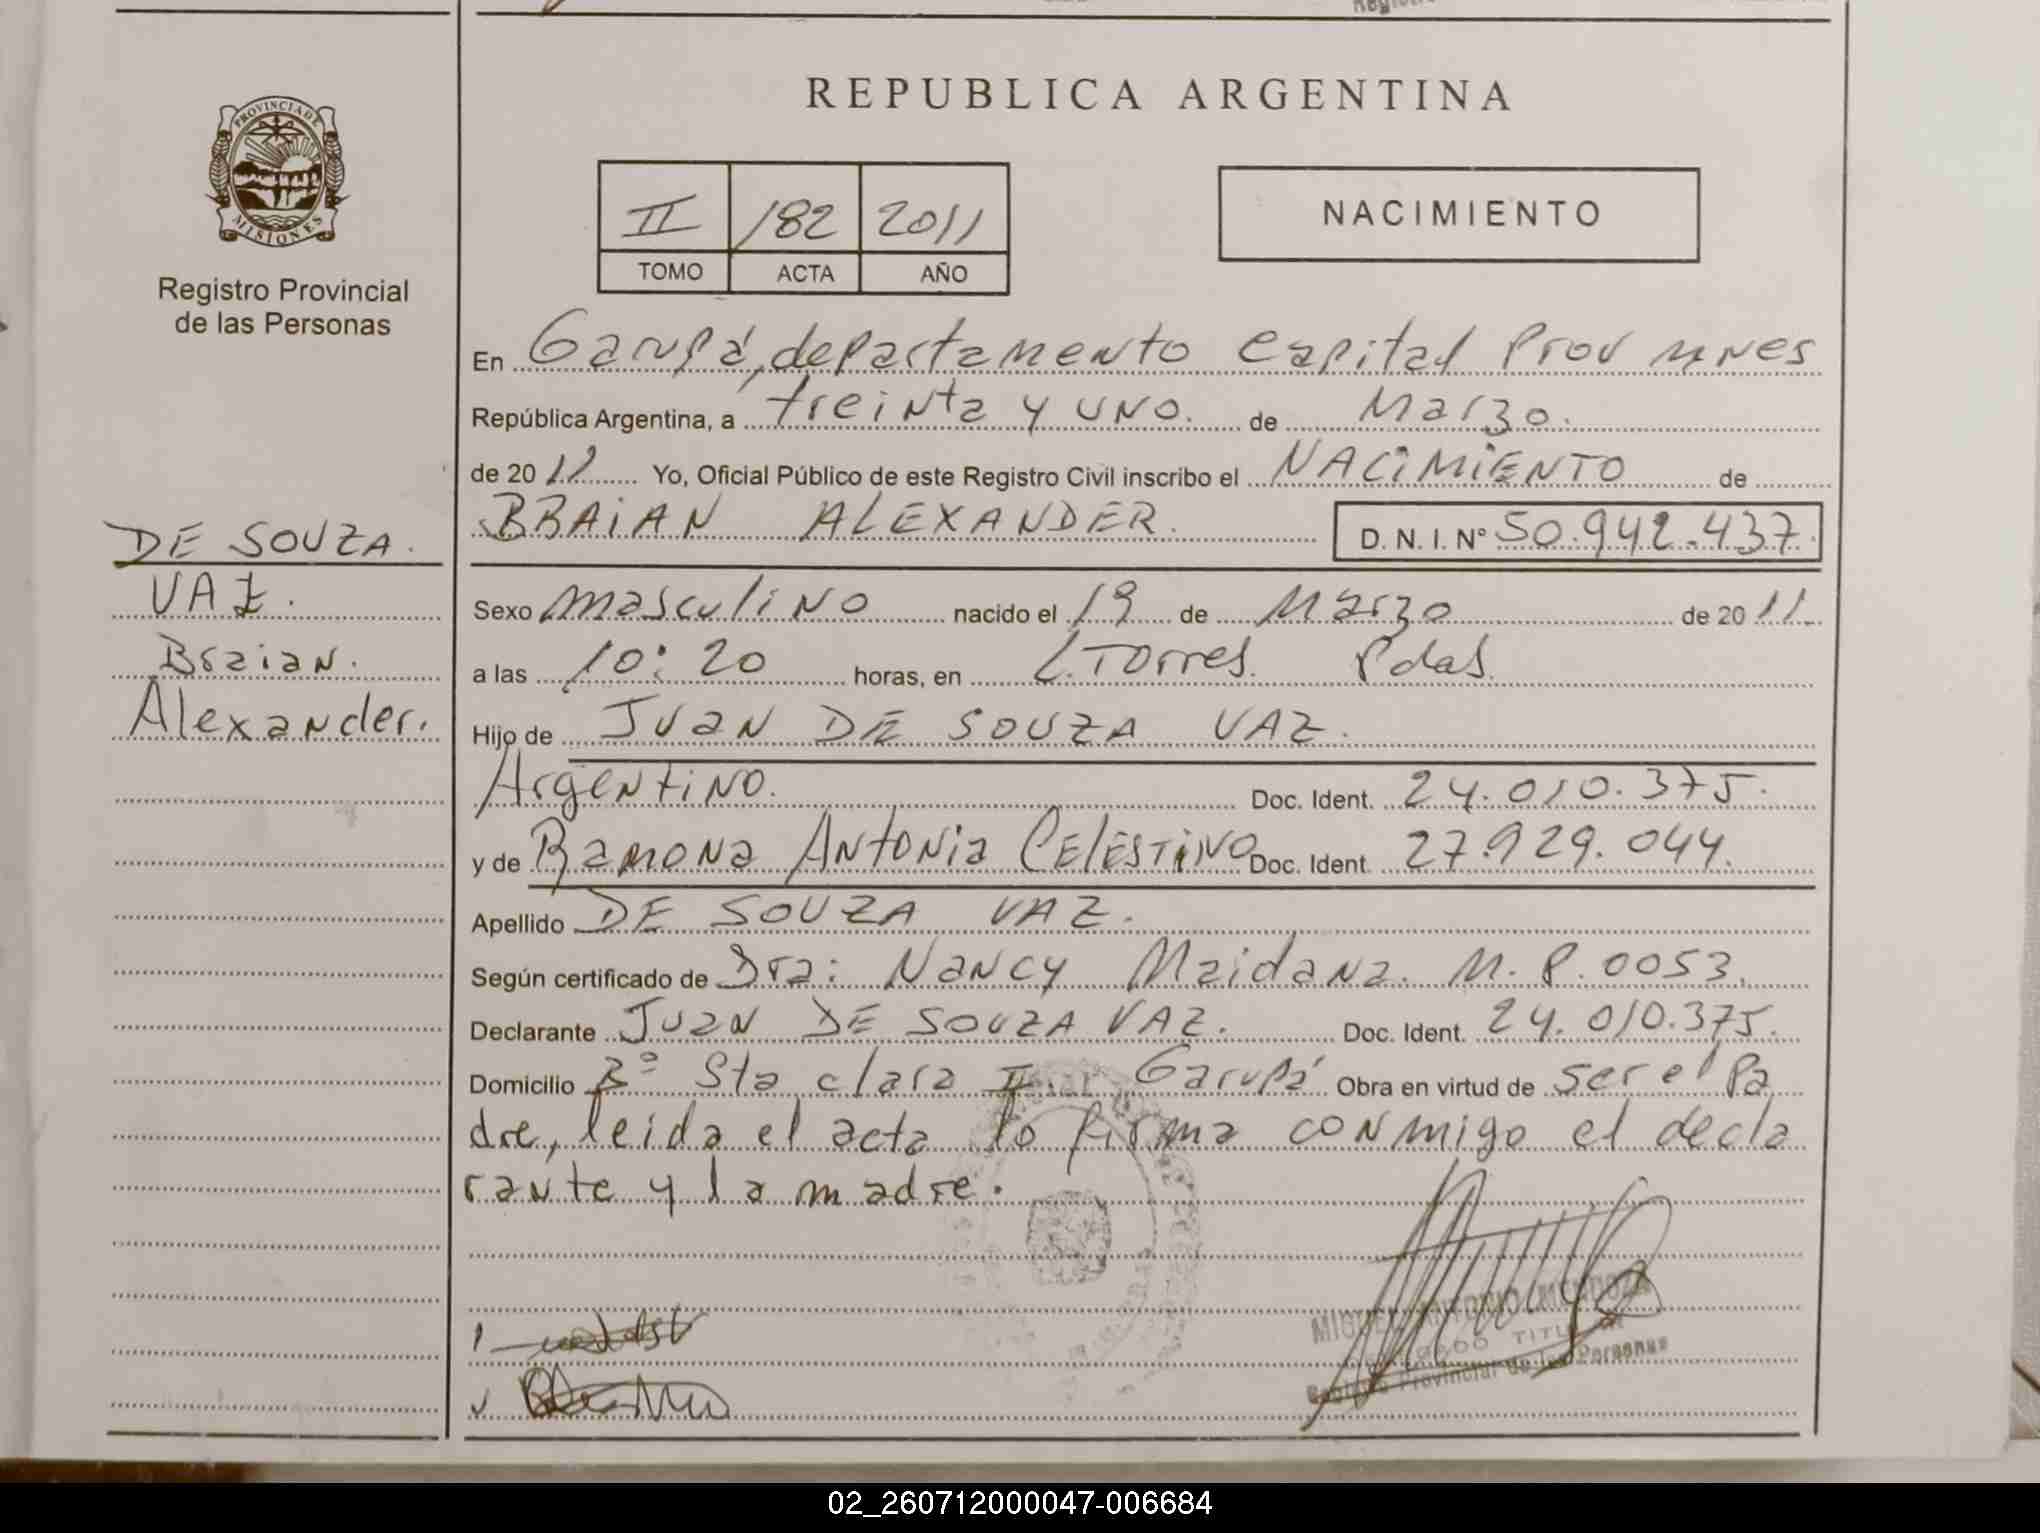 PROVINCIA DE
MISIONES
Registro Provincial
de las Personas
DE SOUZA.
VAZ.
Braian.
Alexander.
REPUBLICA ARGENTINA
II 182 2011
TOMO ACTA AÑO
NACIMIENTO
En Garupá, departamento Capital Prov Mnes
República Argentina, a treinta y uno. de Marzo.
de 2011 Yo, Oficial Público de este Registro Civil inscribo el NACIMIENTO de
BRAIAN ALEXANDER. D.N.I. Nº 50.942.437
Sexo masculino nacido el 19 de Marzo de 2011
a las 10:20 horas, en L. Torres. Pdas.
Hijo de Juan DE SOUZA VAZ.
Argentino. Doc. Ident. 24.010.375.
y de Ramona Antonia CELESTINO Doc. Ident. 27.929.044.
Apellido DE SOUZA VAZ.
Según certificado de Dra: Nancy Maidana. M.P. 0053.
Declarante Juan DE SOUZA VAZ. Doc. Ident. 24.010.375.
Domicilio Bº Sta clara II. Garupá Obra en virtud de ser el Pa
dre, leida el acta lo firma conmigo el decla
rante y la madre.
MIGUEL ANTONIO MENDOZA
Registro Provincial de las Personas
02_260712000047-006684